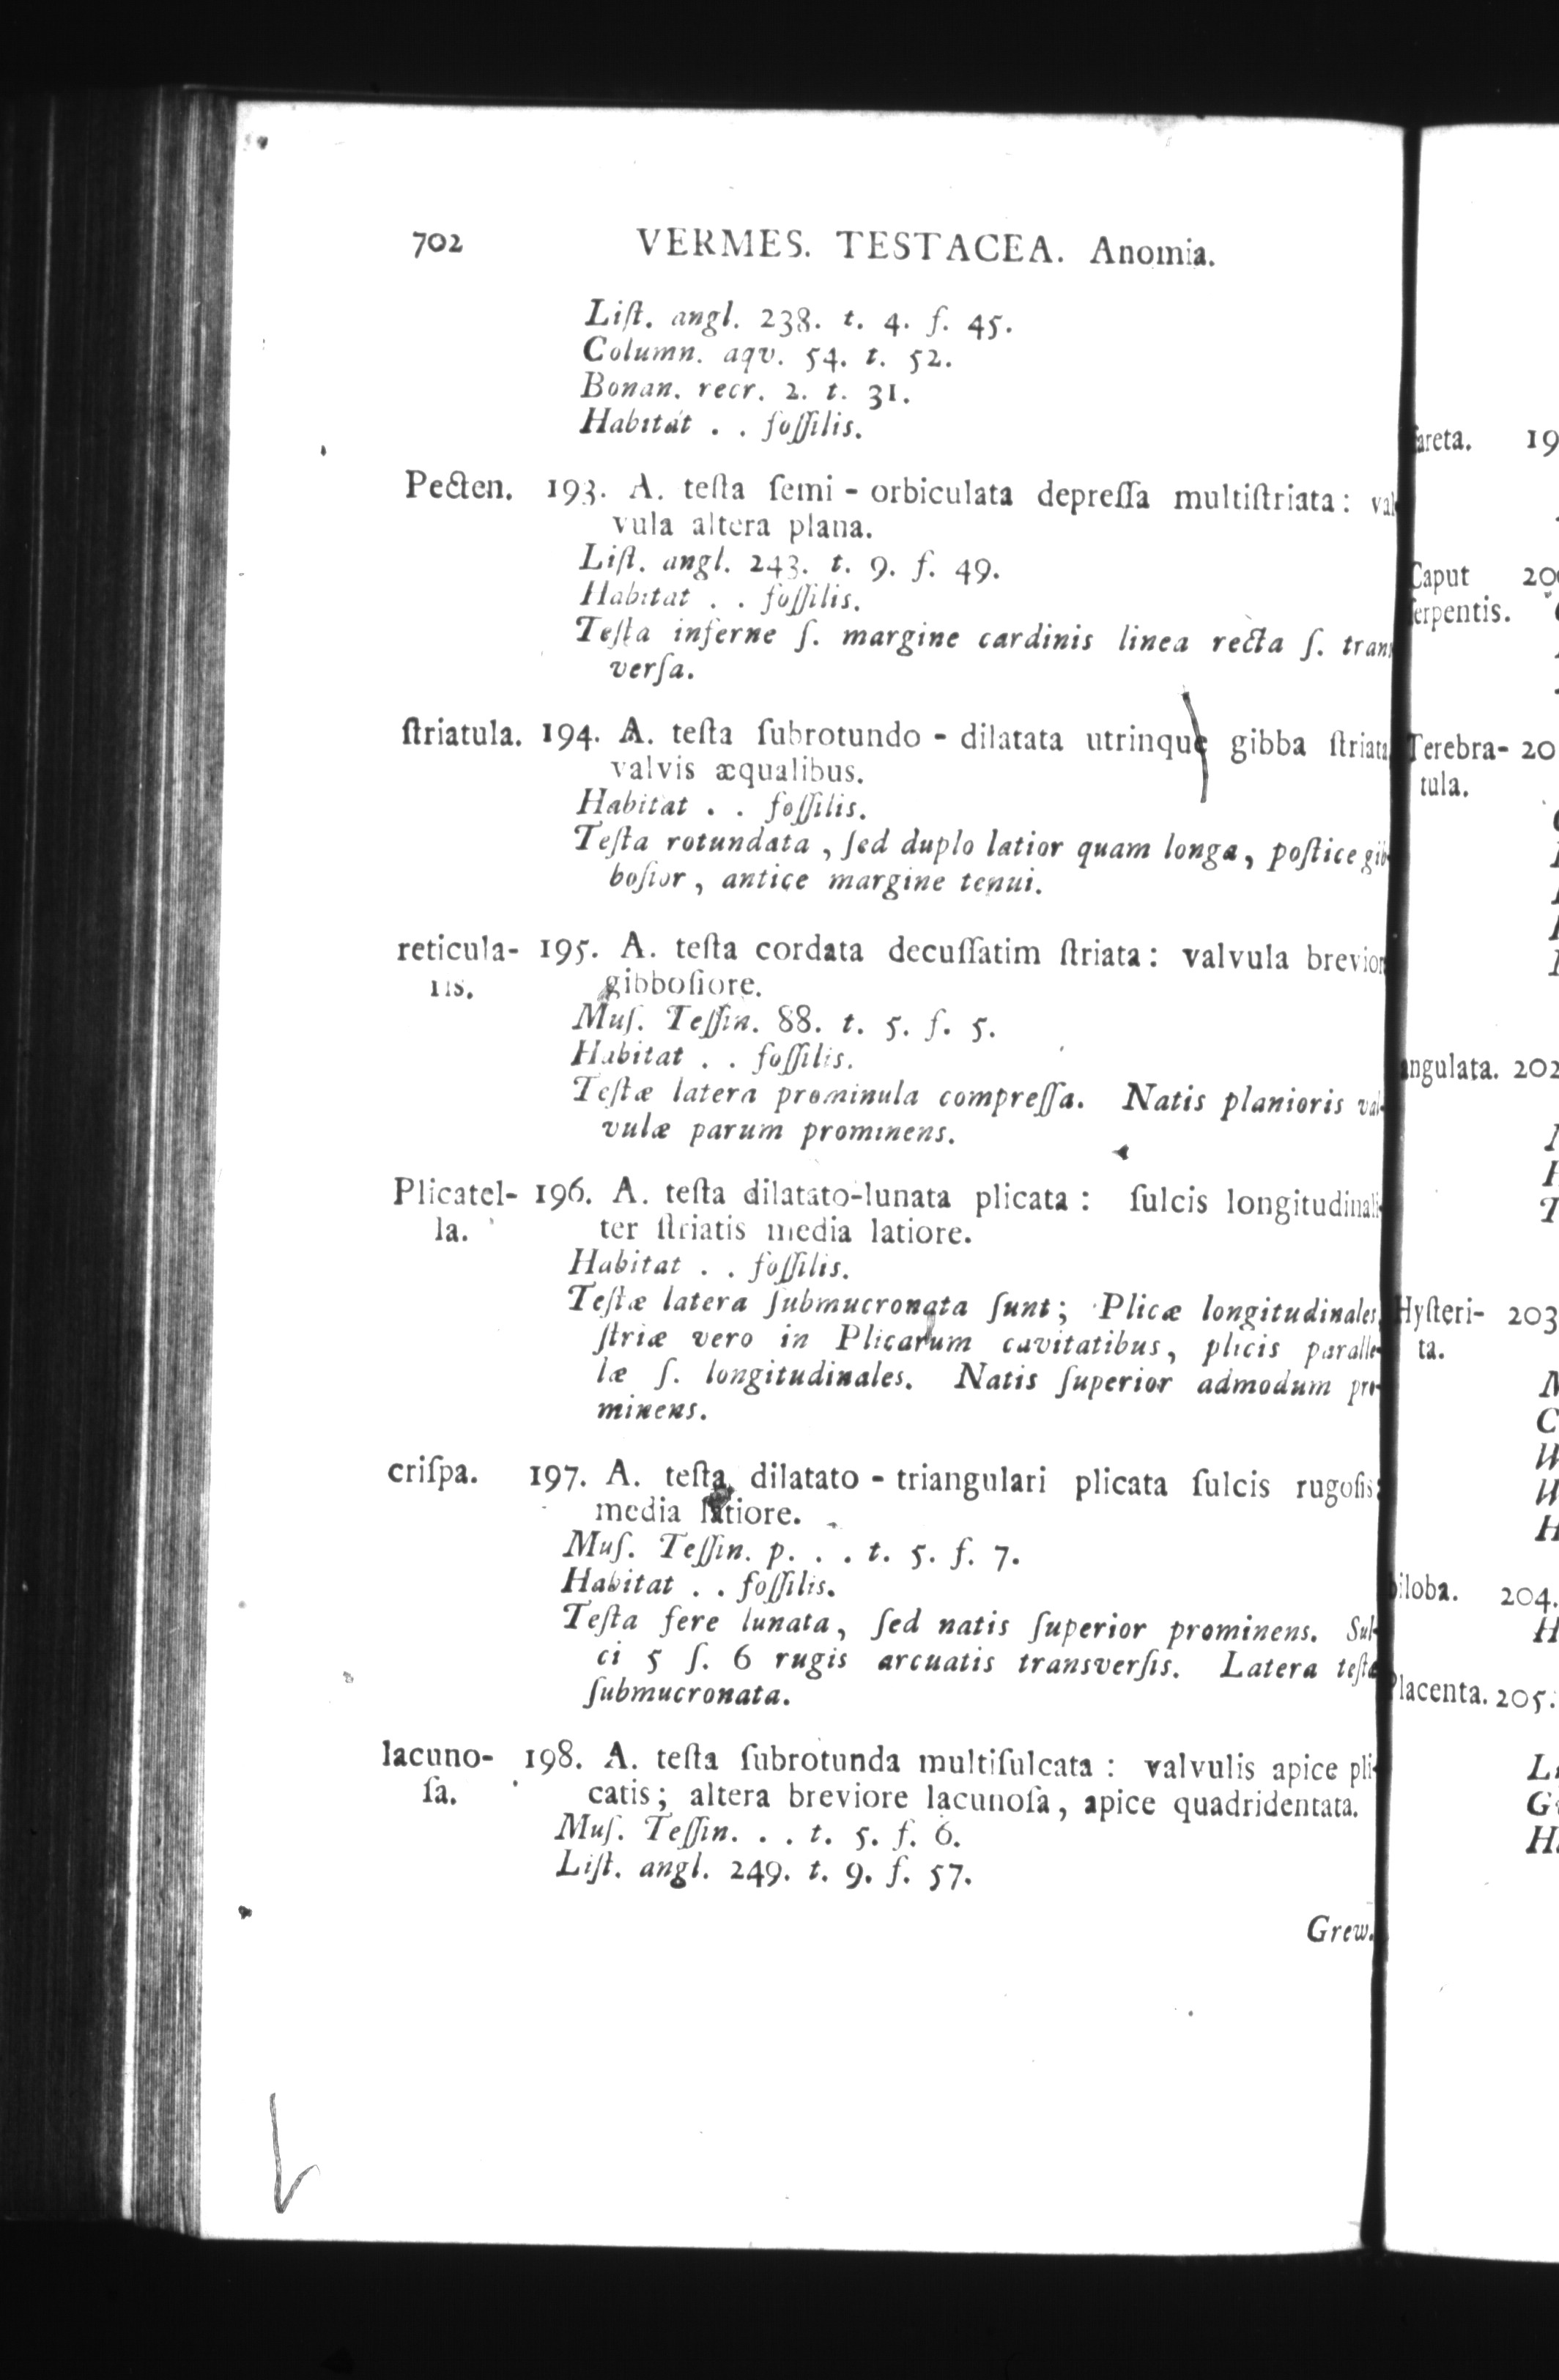 702 VERMES. TESTACEA. Anomia.
Liſt. angl. 238. t. 4. f. 45.
Column. aqv. 54. t. 52.
Bonan. recr. 2. t. 31.
Habitat . . foſſilis.
Pecten. 193. A. teſta ſemi - orbiculata depreſſa multiſtriata: val-
vula altera plana.
Liſt. angl. 243. t. 9. f. 49.
Habitat . . foſſilis.
Teſta inferne ſ. margine cardinis linea recta ſ. tranſ
verſa.
ſtriatula. 194. A. teſta ſubrotundo - dilatata utrinque gibba ſtriata
valvis æqualibus.
Habitat . . foſſilis.
Teſta rotundata, ſed duplo latior quam longa, poſtice gib-
boſior, antice margine tenui.
reticula- 195. A. teſta cordata decuſſatim ſtriata: valvula brevior
ris. gibboſiore.
Muſ. Teſſin. 88. t. 5. f. 5.
Habitat . . foſſilis.
Teſtæ latera prominula compreſſa. Natis planioris val-
vulæ parum prominens.
Plicatel- 196. A. teſta dilatato-lunata plicata: ſulcis longitudinali-
la. ter ſtriatis media latiore.
Habitat . . foſſilis.
Teſtæ latera ſubmucronata ſunt; Plicæ longitudinales,
ſtriæ vero in Plicarum cavitatibus, plicis paralle-
læ ſ. longitudinales. Natis ſuperior admodum pro-
minens.
criſpa. 197. A. teſta dilatato - triangulari plicata ſulcis rugoſis:
media latiore.
Muſ. Teſſin. p. . . t. 5. f. 7.
Habitat . . foſſilis.
Teſta fere lunata, ſed natis ſuperior prominens. Sul-
ci 5 ſ. 6 rugis arcuatis transverſis. Latera teſtæ
ſubmucronata.
lacuno- 198. A. teſta ſubrotunda multiſulcata: valvulis apice pli-
ſa. catis; altera breviore lacunoſa, apice quadridentata.
Muſ. Teſſin. . . t. 5. f. 6.
Liſt. angl. 249. t. 9. f. 57.
Grew.
areta. 19
Caput 20
ſerpentis.
Terebra- 20
tula.
angulata. 202
Hyſteri- 203
ta.
biloba. 204.
H
Placenta. 205.